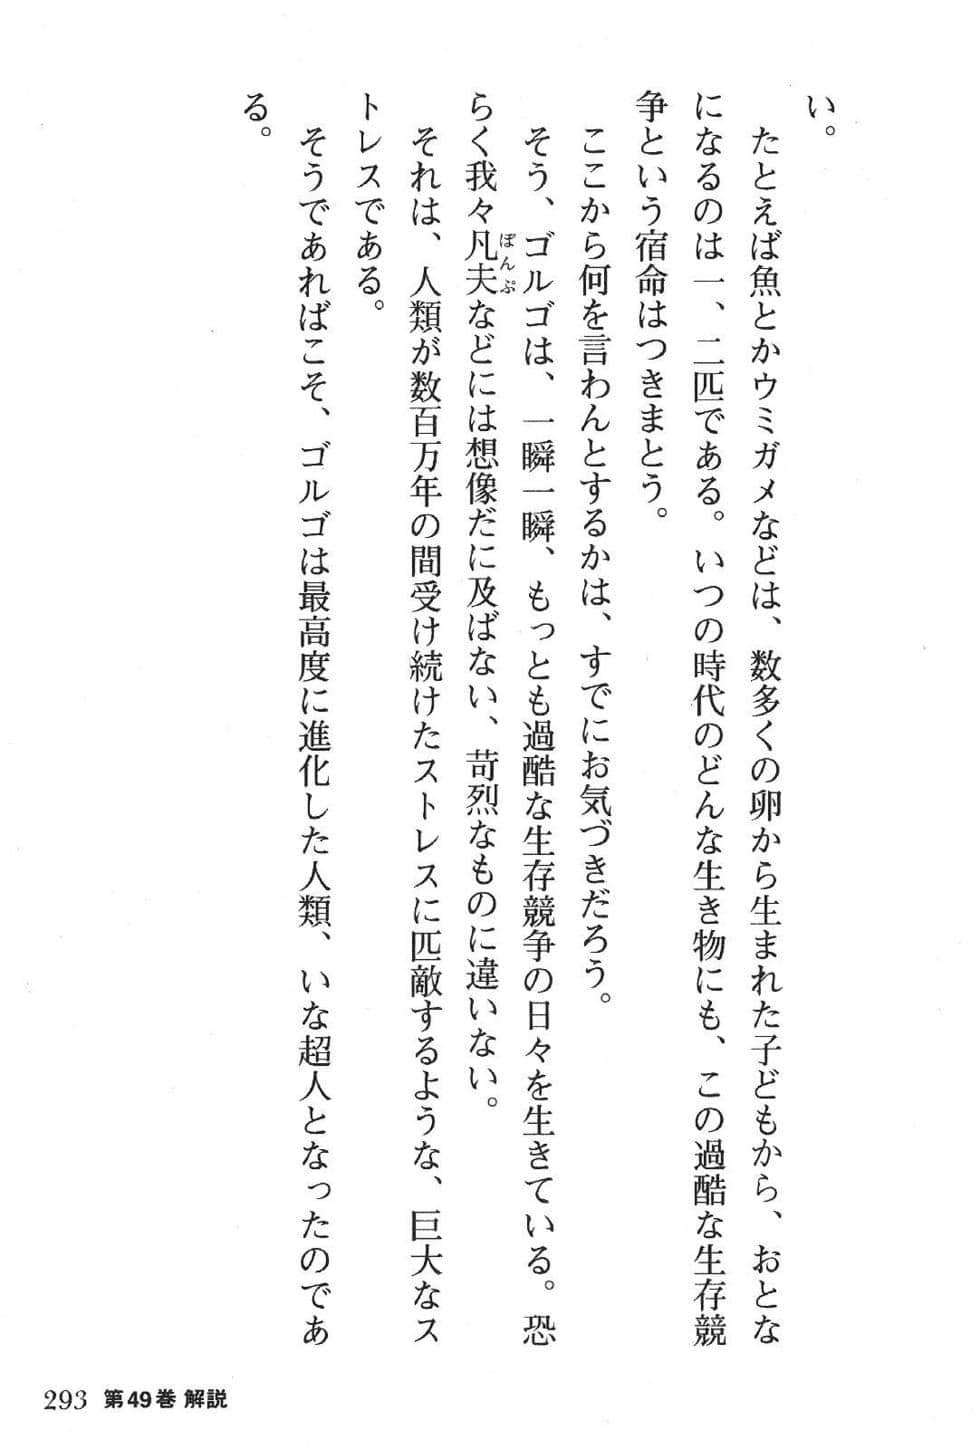 い。
たとえば魚とかウミガメなどは、数多くの卵から生まれた子どもから、おとな
になるのは一、二匹である。いつの時代のどんな生き物にも、この過酷な生存競
争という宿命はつきまとう。
ここから何を言わんとするかは、すでにお気づきだろう。
そう、ゴルゴは、一瞬一瞬、もっとも過酷な生存競争の日々を生きている。恐
らく我々凡夫などには想像だに及ばない、苛烈なものに違いない。
ぼんぷ
それは、人類が数百万年の間受け続けたストレスに匹敵するような、巨大なス
トレスである。
そうであればこそ、ゴルゴは最高度に進化した人類、いな超人となったのであ
る。
293 第49巻 解説